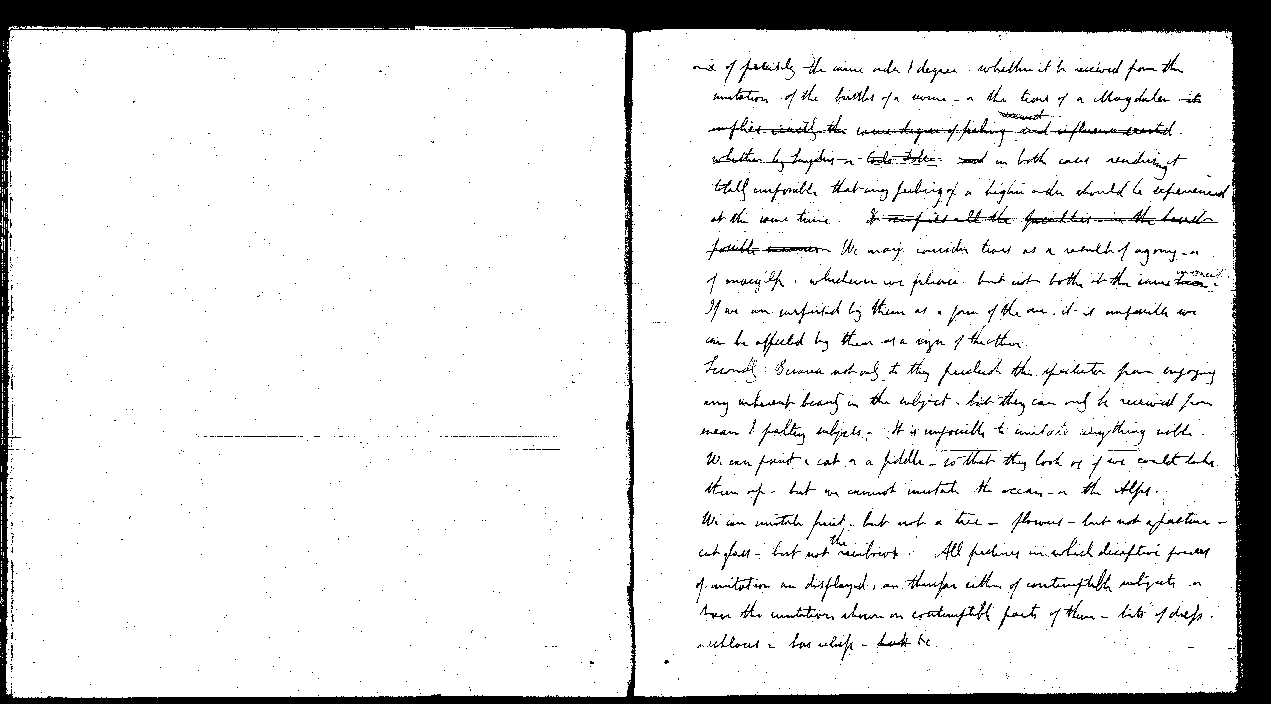 one of precisely the same order & degree. whether it be received from the
imitation of the bristles of a        - or the tears of a Magdalen it
implies exactly the same degree of feeling and influence exerted
whether by        or Carlo Dolce. and in both cases rendering it
totally impossible that any feeling of a higher order should be experienced
at the same time. It        all the faculties - in the lowest
possible manner We may consider tears as a result of agony - or
of        . whichever we please. but not both at the same time.
If we are surprised by them as a          of the one. it is impossible we
can be affected by them as a sign of the other.
Secondly Because not only do they preclude the spectator from enjoying
any inherent beauty in the subject. but they can only be received from
mean & paltry subjects. It is impossible to imitate anything noble.
We can paint a cat or a fiddle - so that they look as if we could take
them up - but we cannot imitate the ocean - or the Alps.
We can imitate fruit - but not a tree - flowers - but not a pasture -
cut glass - but not the rainbow. All pictures in which deceptive powers
of imitation are displayed, are therefore either of contemptible subjects or
have the imitation shown in contemptible parts of them - bits of dress.